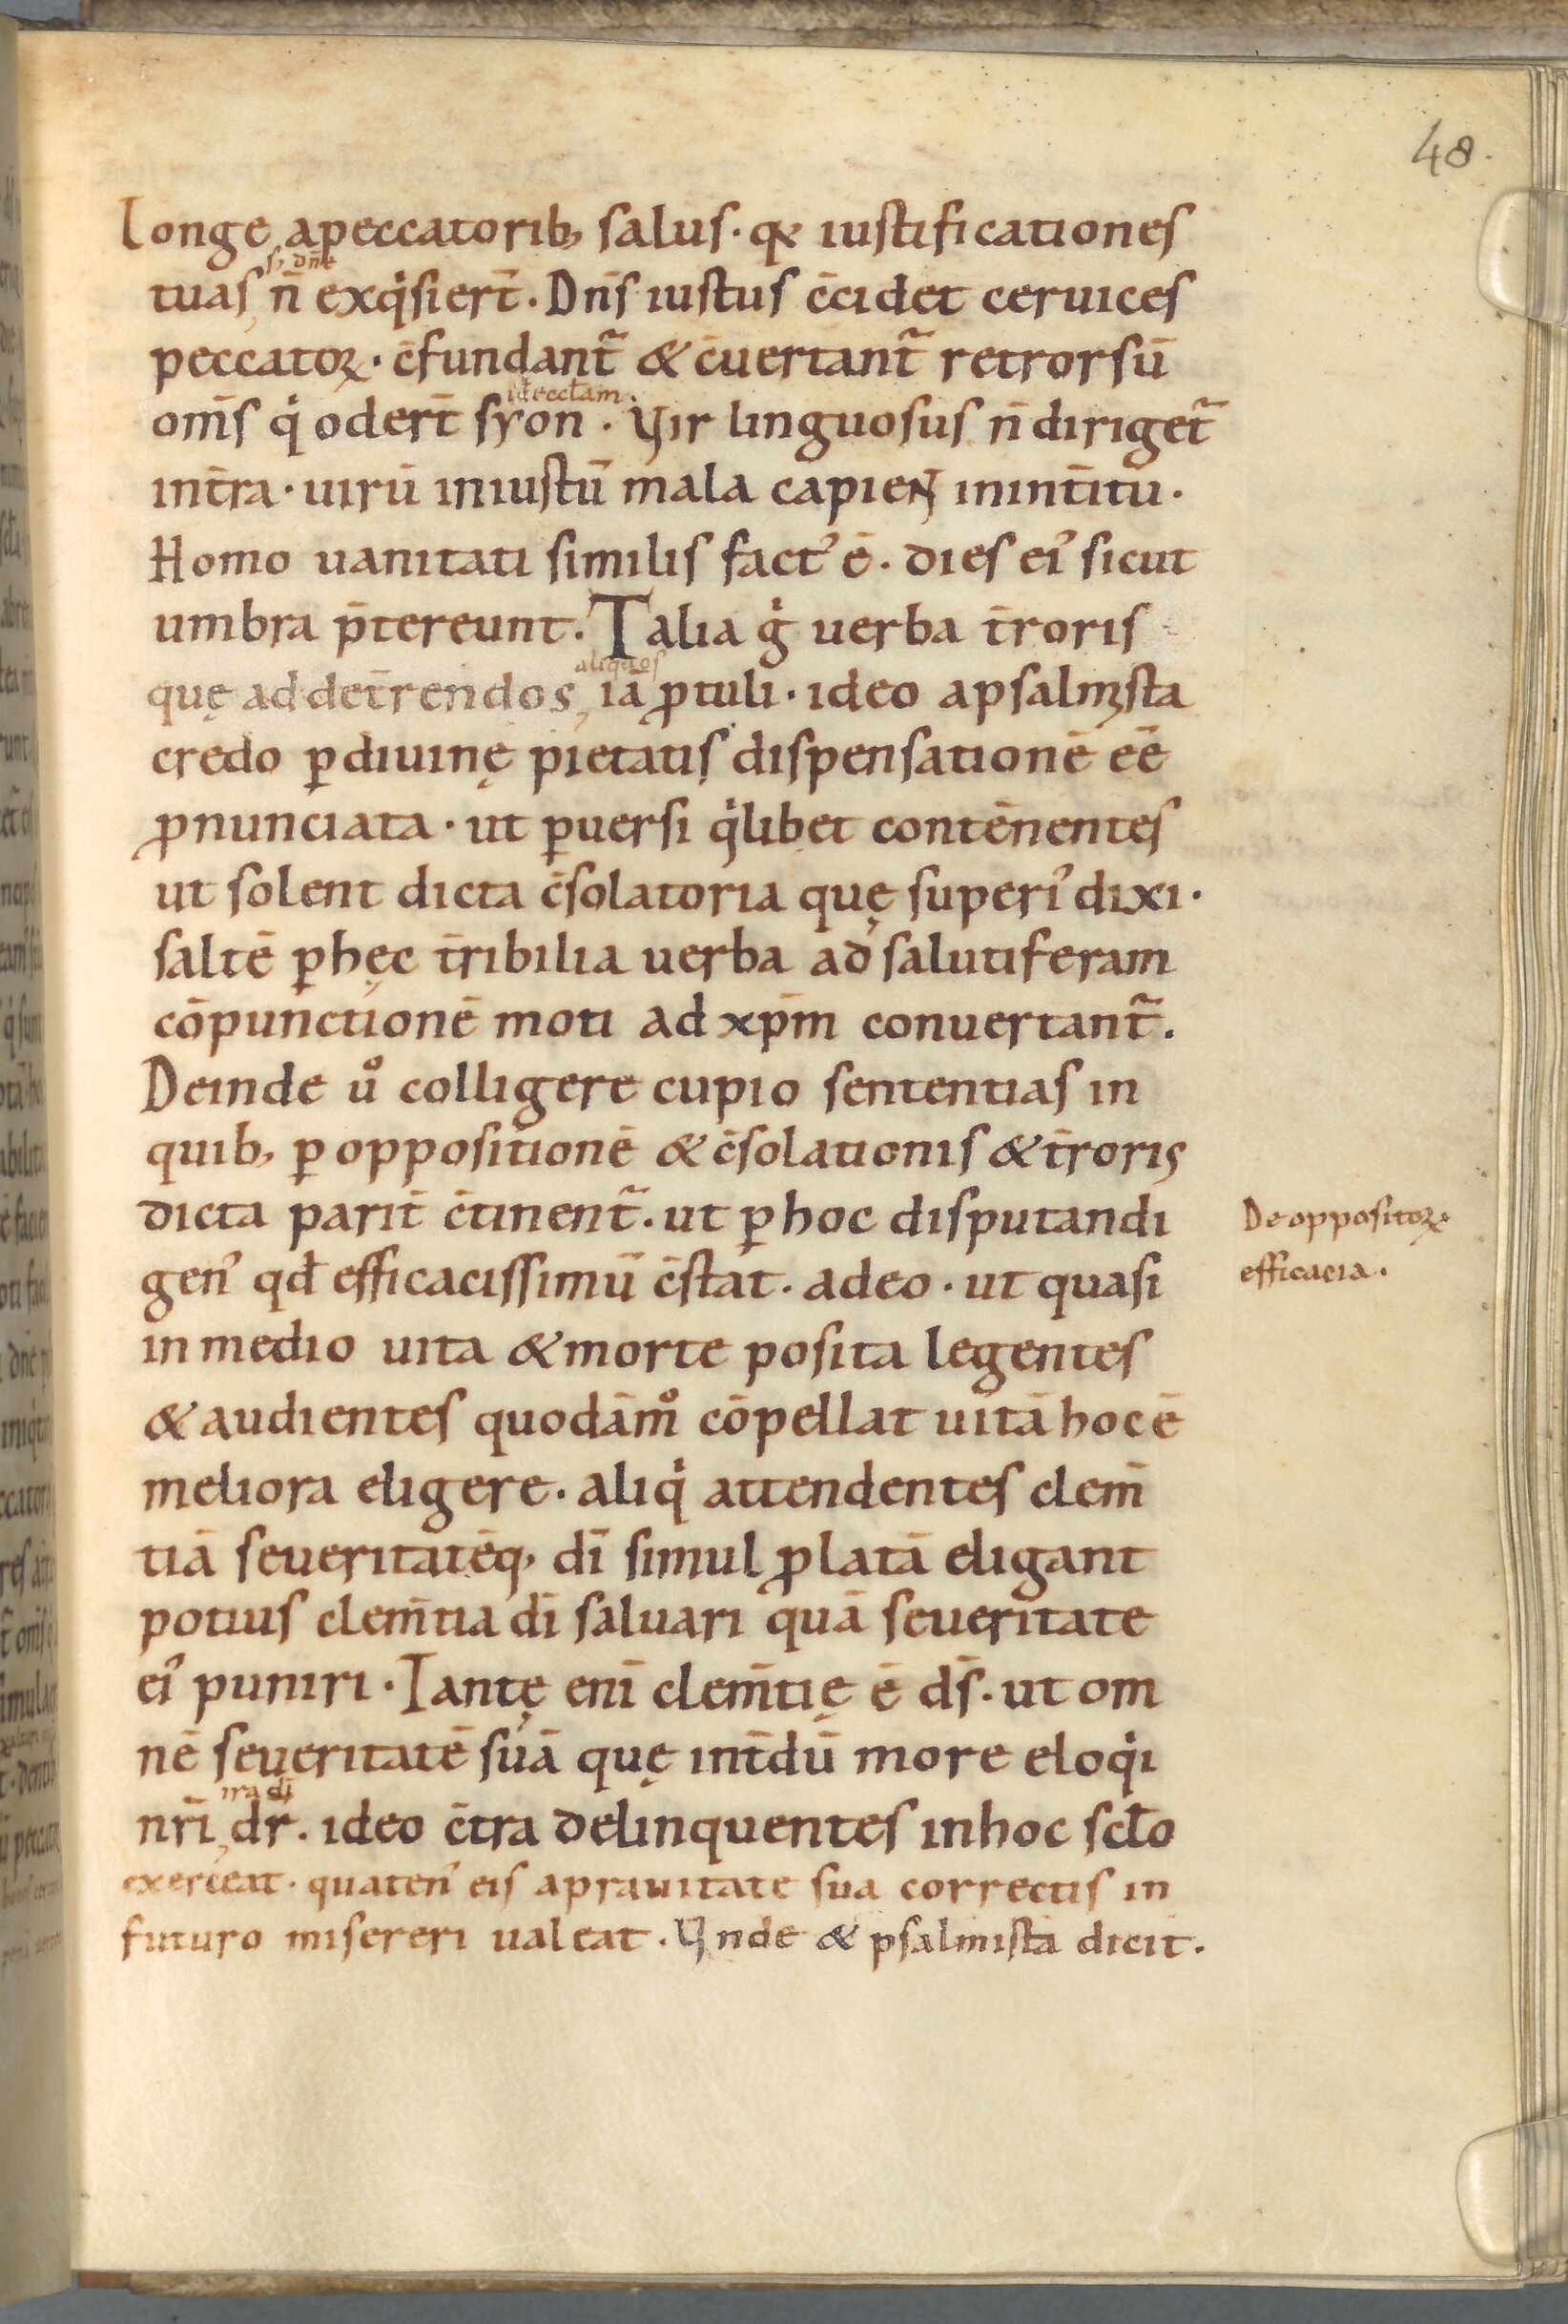 48.
Longe apeccatorib; salus. qꝛ iustificationes
s. dn̄e
tuas n̄ exqͥsiert̄. Dn̄s iustus c̄cidet ceruices
peccatoꝝ. c̄fundant᷑ & c̄uertant᷑ retrorsū
id ē eccl̄am.
om̄s qͥ odert̄ syon. Vir linguosus n̄ diriget᷑
int̄ra. uirū iniustū mala capient inint̄itu.
Homo uanitati similis fact᾽ ē. dies ei᾽ sicut
umbra p̄tereunt. Talia gͥ uerba t̄roris
aliquos
quę addet̄rendos iā ꝓtuli. ideo apsalmista
credo ꝑdiuinę pietatis dispensationē eē
ꝓnunciata. ut ꝑuersi qͥlibet contēnentes
ut solent dicta c̄solatoria quę superi᾽ dixi.
saltē ꝑhęc t̄ribilia uerba ad salutiferam
cōpunctionē moti ad xp̄m conuertant᷑.
Deinde uͦ colligere cupio sententias in
quib; ꝑ oppositionē & c̄solationis & t̄roris
dicta parit̄ c̄tinent᷑. ut ꝑ hoc disputandi
De oppositoꝝ
gen᾽ qđ efficacissimū c̄stat. adeo. ut quasi
efficacia.
in medio uita & morte posita legentes
& audientes quodāmͦ cōpellat uitā hoc ē
meliora eligere. aliqͥ attendentes clem̄
tiā seueritatēq; dī simul ꝓlatā eligant
potius clem̄tia dī saluari quā seueritate
ei᾽ puniri. Tantę enī clem̄tię ē ds̄. ut om
nē seueritatē suā quę int̄dū more eloqͥi
ira dī
nr̄i dr̄. ideo c̄tra delinquentes inhoc scl̄o
exerceat. quaten᾽ eis aprauitate sua correctis in
futuro misereri ualeat. Vnde & psalmista dicit.